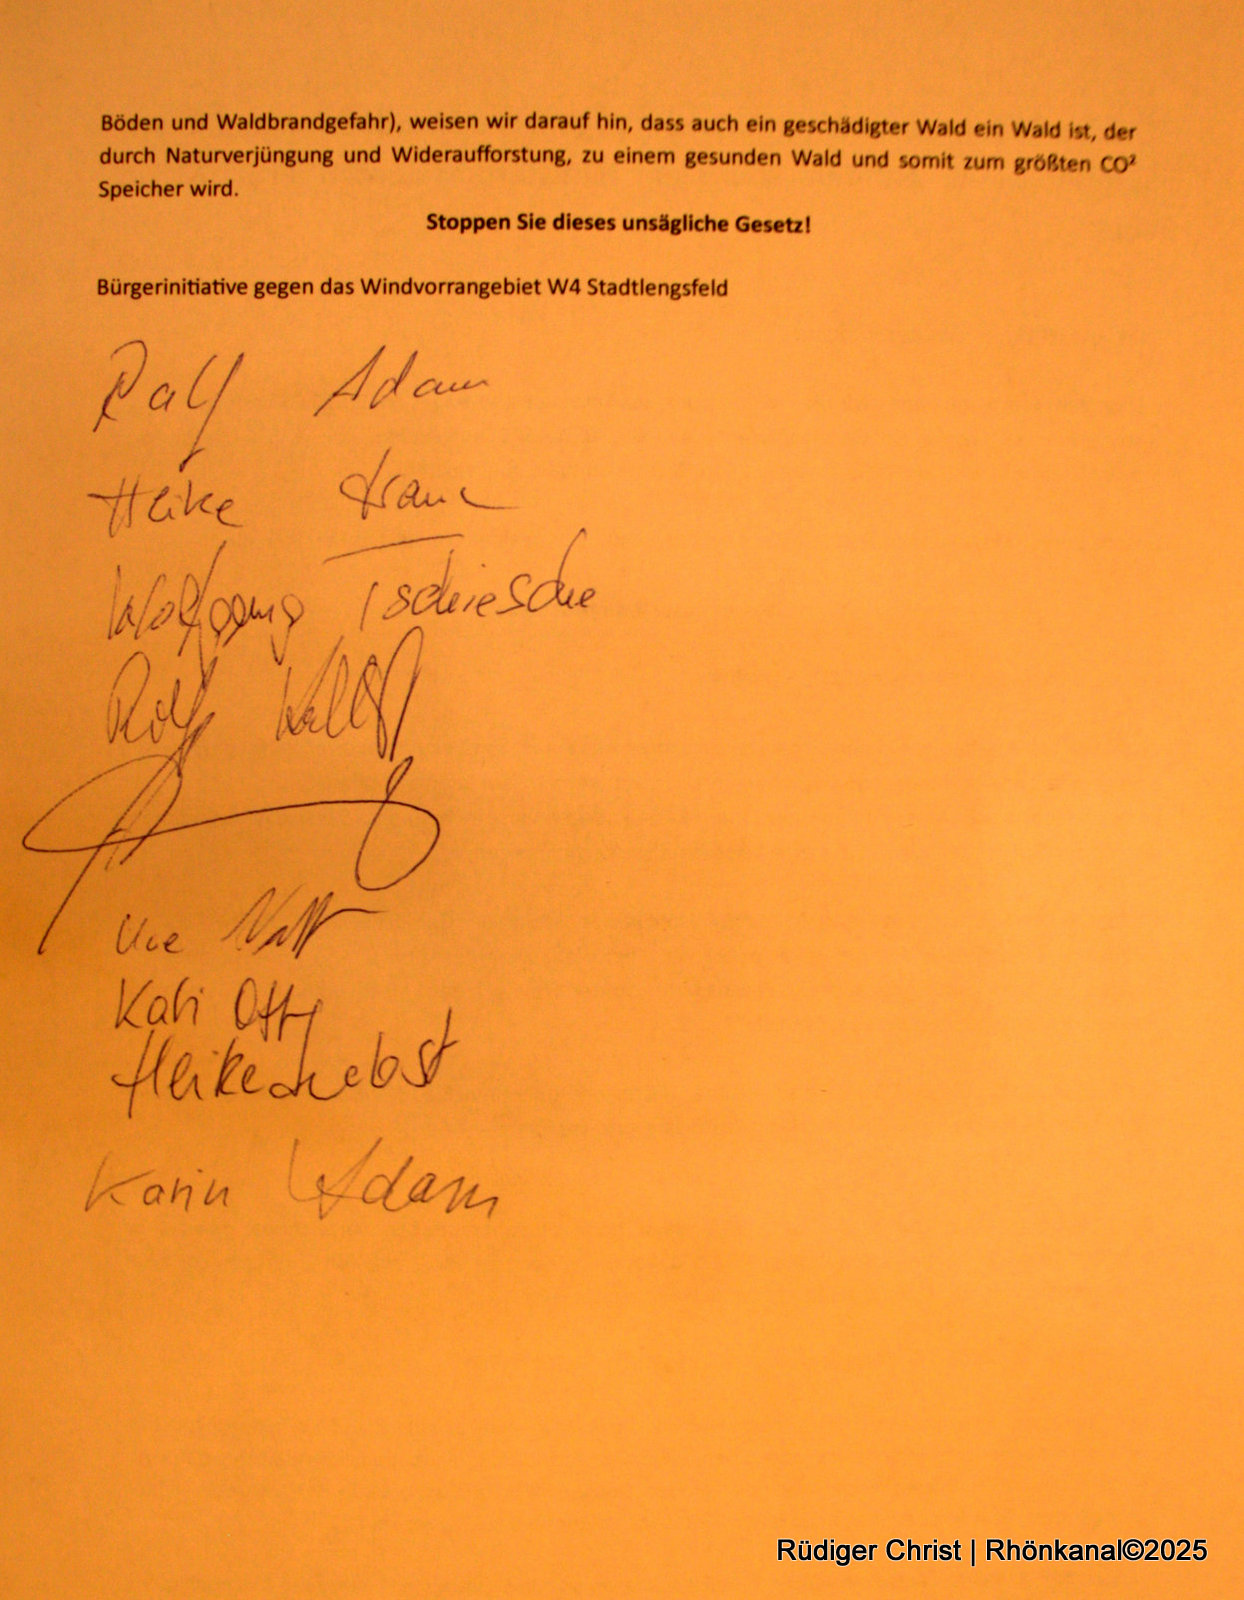 Böden und Waldbrandgefahr), weisen wir darauf hin, dass auch ein geschädigter Wald ein Wald ist, der
durch Naturverjüngung und Wideraufforstung, zu einem gesunden Wald und somit zum größten CO²
Speicher wird.
Stoppen Sie dieses unsägliche Gesetz!
Bürgerinitiative gegen das Windvorrangebiet W4 Stadtlengsfeld
Ralf Adam
Heike
Wolfgang Tschiesche
Rolf
Uwe
Kati Otto
Heike
Karin Adam
Rüdiger Christ | Rhönkanal©2025